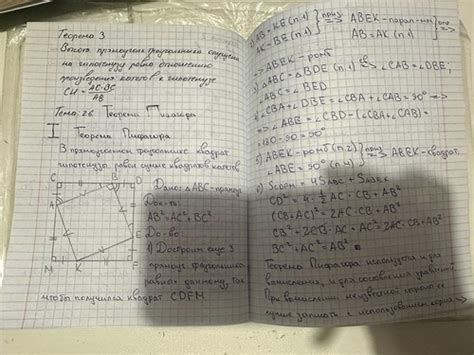 Теорема 3
Высота прямоуг. треугольника опущена
на гипотенузу равна отношению
произведения катетов к гипотенузе
CH = AC·BC/AB
Тема: 26 Теорема Пифагора
I Теорема Пифагора
В прямоугольном треугольнике квадрат
гипотенузы равен сумме квадратов катетов
C B D
Дано: △ABC-прямоуг
A
Док-ть:
AB²=AC²+BC²
До-во:
E
1) Достроим ещё 3
прямоуг. треугольника
M K F
равных данному, так
чтобы получился квадрат CDFM
2) AB = KE (п.1)
AK = BE (п.1)
ABEK - парал-мм
AB = AK (п.1)
=> ABEK - ромб
3) △ABC = △BDE (п.1) => ∠CAB = ∠DBE;
∠ABC = ∠BED
4) ∠CBA + ∠DBE = ∠CBA + ∠CAB = 90° =>
=> ∠ABE = ∠CBD - (∠CBA + ∠CAB) =
= 180 - 90 = 90°
5) ABEK - ромб (п.2)
∠ABE = 90° (п.4)
=> ABEK - квадрат
6) 4S ABC + S ABEK
CD² = 4 · ½ AC · CB + AB²
(CB + AC)² = 2AC · CB + AB²
CB² + 2CB · AC + AC² = 2AC · CB + AB²
BC² + AC² = AB²
Теорема Пифагора используется и для
вычисления, и для составления уравнений
При вычислении неизвестной стороны
лучше записать с использованием корня